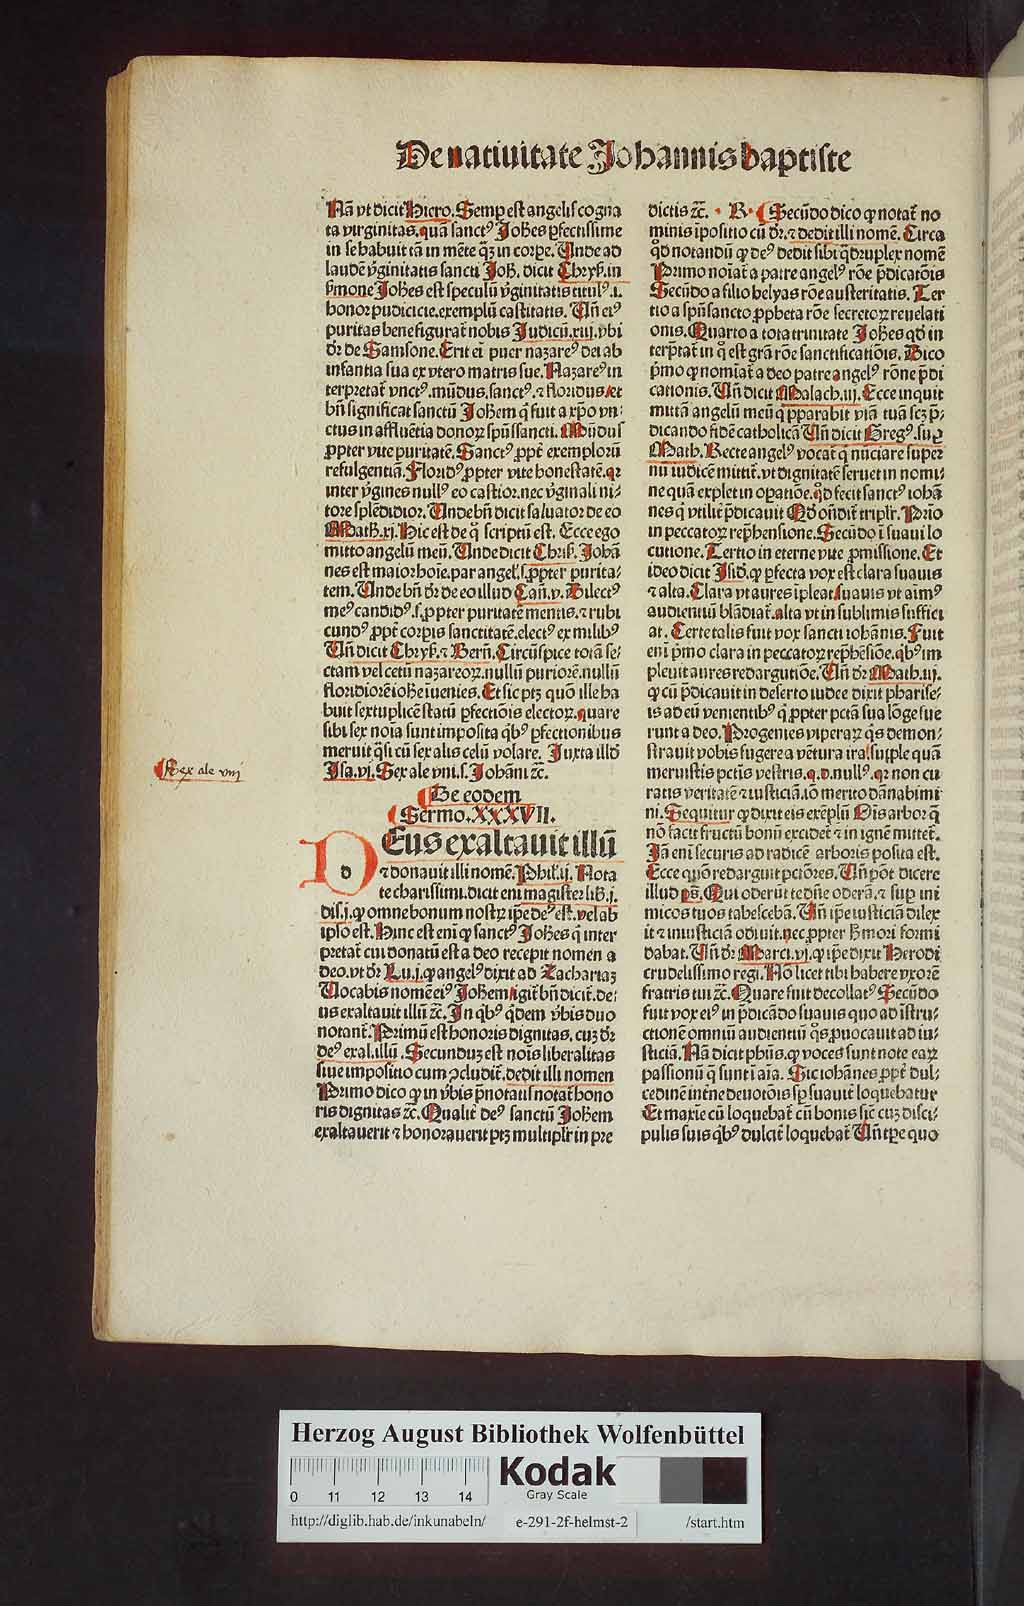 De natiuitate Johannis baptiste
Nã vt dicit Hiero. Semp est angelis cogna
ta virginitas. quã sanctꝰ Johẽs ꝑfectissime
in se habuit tã in mẽte qꝫ in corꝑe. Unde ad
laudẽ v̕ginitatis sancti Joh̃. dicit Chrys̃. in
s̃mone Johẽs est speculũ v̕ginitatis titulꝰ .i.
honor pudicicie. exemplũ castitatis. Uñ eiꝰ
puritas bene figurat̃ nobis Judicũ. xiij. vbi
dr̃ de Samsone. Erit ei puer nazareꝰ dei ab
infantia sua ex vtero matris sue. Nazareꝰ in
terpretat̃ vnctꝰ. mũdus. sanctꝰ. ⁊ floridus. et
bñ significat sanctũ Johẽm q̃ fuit a xp̃o vn⸗
ctus in affluẽtia donoꝝ spũssancti. Mũdus
ꝓpter vite puritatẽ. Sanctꝰ ꝓpt̃ exemploꝝ
refulgentiã. Floridꝰ ꝓpter vite honestatẽ. qꝛ
inter v̕gines nullꝰ eo castior. nec v̕ginali ni⸗
tore splẽdidior. Unde bñ dicit saluator de eo
Math̃. xj. Hic est de q̊ scriptũ est. Ecce ego
mitto angelũ meũ. Unde dicit Chris̃. Johã
nes est maior hoĩe. par angel̕. s. ꝓpter purita⸗
tem. Unde bñ dr̃ de eo illud Cañ. v. Dilectꝰ
meꝰ candidꝰ. s. ꝓpter puritatẽ mentis. ⁊ rubi
cundꝰ ꝓpt̃ corꝑis sanctitatẽ. electꝰ ex milibꝰ
Uñ dicit Chrys̃. ⁊ Berñ. Circũspice totã se⸗
ctam vel cetũ nazareoꝝ. nullũ puriorẽ. nullũ
floridiorẽ iohẽ iuenies. Et sic ptꝫ quõ ille ha
buit sextuplicẽ statũ ꝑfectiõis electoꝝ. quare
sibi sex noĩa sunt imposita qͥbꝰ ꝑfectionibus
meruit q̃si cũ sex alis celũ volare. Juxta illð
Isa. vj. Sex ale vni. s. Johãni ꝛc̃.
Sex ale vnj
De eodem
Sermo. XXXVII.
DEus exaltauit illũ
⁊ donauit illi nomẽ. Phil̕. ij. Nota
te charissimi. dicit eni magister lib̃. j.
dis. j. ꝙ omne bonum nostꝝ ip̃e deꝰ est. vel ab
ipso est. Hinc est eni ꝙ sanctꝰ Johẽs q̃ inter
pretat̃ cui donatũ est a deo recepit nomen a
deo. vt dr̃ Lu. j. ꝙ angelꝰ dixit ad Zachariaꝫ
Uocabis nomẽ eiꝰ Johẽm. igit̃ bñ dicit̃. de⸗
us exaltauit illũ ꝛc̃. In qͥbꝰ q̃dem v̕bis duo
notant̃. Primũ est honoris dignitas. cuꝫ dr̃
deꝰ exal. illũ. Secunduꝫ est nois liberalitas
siue impositio cum ↄcludit̃. dedit illi nomen
Primo dico ꝙ in v̕bis p̃notatis notat̃ hono
ris dignitas ꝛc̃. Qualit̃ deꝰ sanctũ Johẽm
exaltauerit ⁊ honorauerit ptꝫ multiplr̃ in pre
dictis ꝛc̃. B. Secũdo dico ꝙ notat̃ no
minis ĩpositio cũ dr̃. ⁊ dedit illi nomẽ. Circa
qð notandũ ꝙ deꝰ dedit sibi q̃druplex nomẽ
Primo noiat̃ a patre angelꝰ rõe p̃dicatõis
Secũdo a filio helyas rõe austeritatis. Ter
tio a spũsancto ꝓpheta rõe secretoꝝ reuelati
onis. Quarto a tota trinitate Johẽs qð in
terp̃tat̃ in q̊ est gr̃a rõe sanctificatiõis. Dico
p̃mo ꝙ nomiat̃ a deo patre angelꝰ rõne p̃di
cationis. Uñ dicit Malach. iij. Ecce inquit
mittã angelũ meũ q̃ p̃parabit viã tuã scꝫ p̃⸗
dicando fidẽ catholicã Uñ dicit Gregꝰ. suꝑ
Math. Recte angelꝰ vocat̃ q̃ nũciare super
nũ iudicẽ mittit̃. vt dignitatẽ seruet in nomi
ne quã explet in oꝑatiõe. qð fecit sanctꝰ iohã
nes q̃ vtilit̃ p̃dicauit Qð oñdit̃ triplr̃. Prio
in peccatoꝝ rep̃hensione. Secũdo ĩ suaui lo
cutione. Tertio in eterne vite ꝓmissione. Et
ideo dicit Isid̃. ꝙ ꝑfecta vox est clara suauis
⁊ alta. Clara vt aures ĩpleat suauis vt aĩmꝰ
audientiũ blãdiat̃. alta vt in sublimis suffici
at. Certe talis fuit vox sancti iohãnis. Fuit
eni p̃mo clara in peccatoꝝ rep̃hẽsiõe. qͥbꝰ im
pleuit aures redargutiõe. Uñ dr̃ Math. iij.
ꝙ cũ p̃dicauit in deserto iudee dixit pharise⸗
is ad eũ venientibꝰ q̃ ꝓpter pctã sua lõge fue
runt a deo. Progenies viperaꝝ q̃s demon⸗
strauit vobis fugere a vẽtura ira. supple quã
meruistis pctis vestris. q. d. nullꝰ. qꝛ non cu
ratis veritatẽ ⁊ iusticiã. iõ merito dãnabimi
ni. Sequitur ꝙ dixit eis exẽplũ Oĩs arbor q̃
nõ facit fructũ bonũ excidet̃ ⁊ in ignẽ mittet̃.
Jã eni securis ad radicẽ arboris posita est.
Ecce qm̃o redarguit pctõres. Uñ põt dicere
illud pš. Qui oderũt te dñe oderã. ⁊ suꝑ ini
micos tuos tabescebã. Uñ ip̃e iusticiã dilex
it ⁊ iniusticiã odiuit. nec ꝓpter h̃ mori formi
dabat. Uñ dr̃ Marci. vj. ꝙ ip̃e dixit Herodi
crudelissimo regi. Nõ licet tibi habere vxorẽ
fratris tui ꝛc̃. Quare fuit decollatꝰ Secũdo
fuit vox eiꝰ in p̃dicãdo suauis quo ad ĩstru⸗
ctionẽ omniũ audientiũ q̃s ꝓuocauit ad iu⸗
sticiã. Nã dicit ph̃us. ꝙ voces sunt note eaꝝ
passionũ q̃ sunt ĩ aĩa. Sic iohãnes ꝓpt̃ dul⸗
cedinẽ int̃ne deuotõis sp̃ suauit̃ loquebatur
Et maxĩe cũ loquebat̃ cũ bonis sic̃ cuꝫ disci⸗
pulis suis qͥbꝰ dulcit̃ loquebat̃ Uñ tꝑe quo
Herzog August Bibliothek Wolfenbüttel
0 11 12 13 14
Kodak
Gray Scale
http://diglib.hab.de/inkunabeln/ e-291-2f-helmst-2 /start.htm